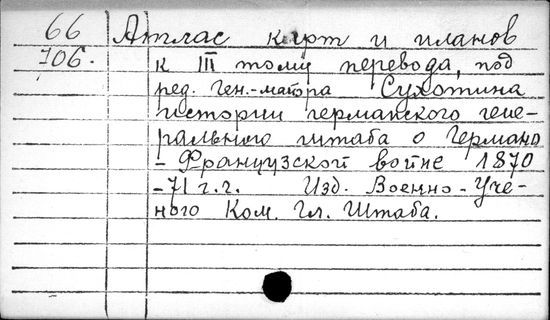 66 Атлас карт и планов
706. к III тому перевода, под
ред. Ген.-майора Сухотина
истории германского гене-
рального штаба о Германо
- Французской войне 1870
-71 г.г. Изд. Военно-Уче-
ного Ком. Гл. Штаба.